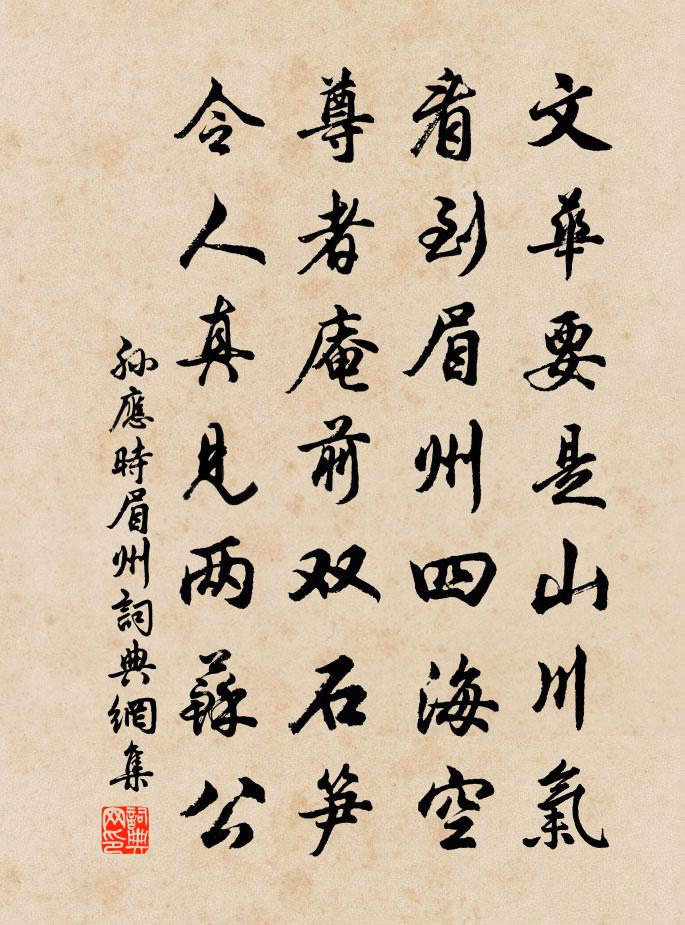 文華要是山川氣
看到眉州四海空
尊者庵前双石笋
令人真見两蘇公
孫應時眉州詞典網集
詞典网印